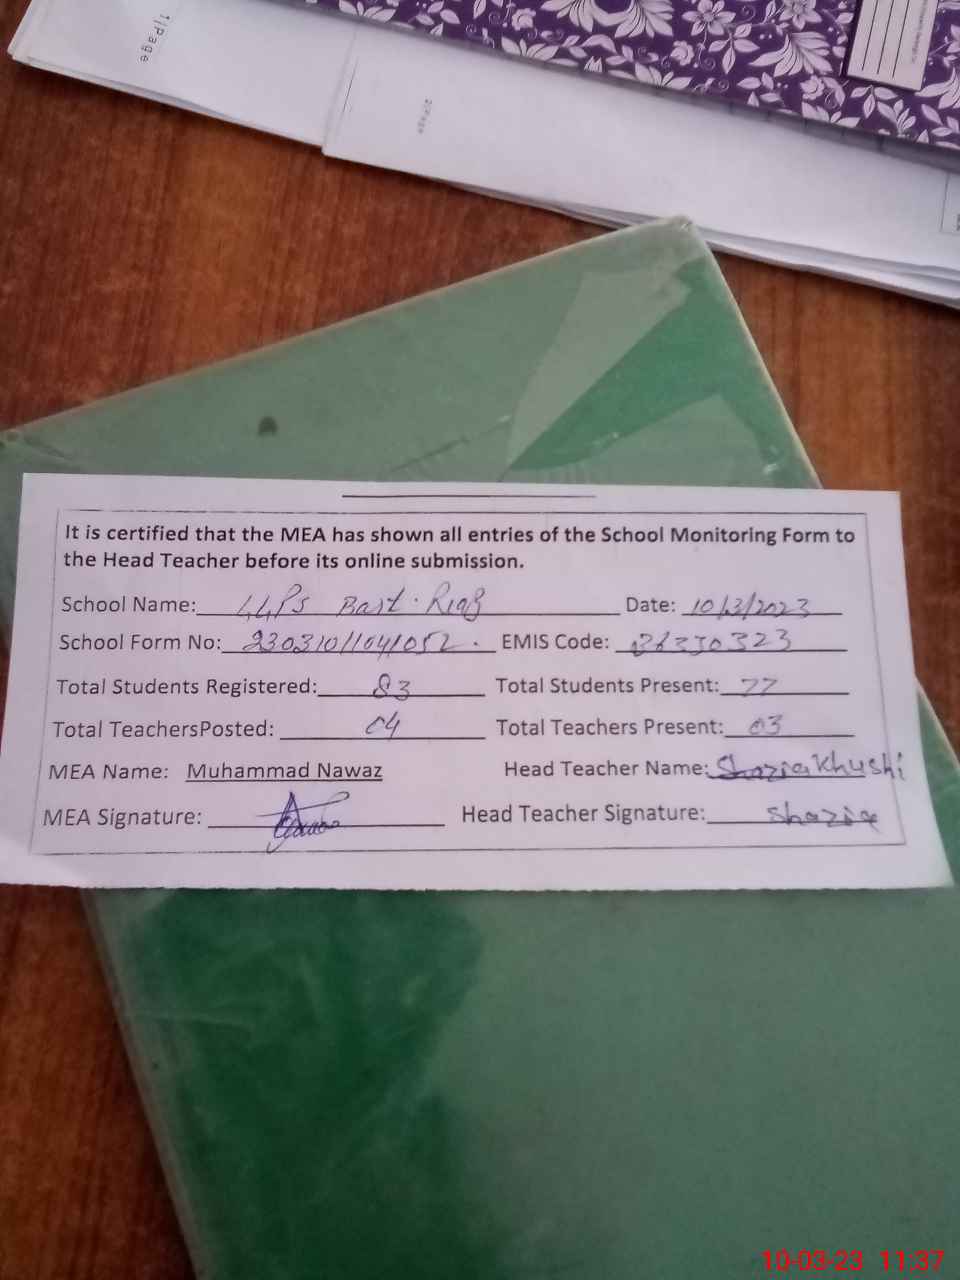 1|Page
2|Page
It is certified that the MEA has shown all entries of the School Monitoring Form to
the Head Teacher before its online submission.
School Name: Bast. Date: 10/3/2023
School Form No: 23031011041052. EMIS Code: 36330323
Total Students Registered: 83 Total Students Present: 77
Total TeachersPosted: 04 Total Teachers Present: 03
MEA Name: Muhammad Nawaz Head Teacher Name: Shazia Khushi
MEA Signature: Head Teacher Signature: Shazia
10-03-23 11:37